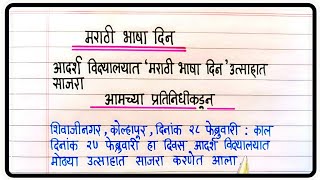 मराठी भाषा दिन
आदर्श विद्यालयात 'मराठी भाषा दिन' उत्साहात
साजरा
आमच्या प्रतिनिधीकडून
शिवाजीनगर, कोल्हापूर, दिनांक २८ फेब्रुवारी : काल
दिनांक २७ फेब्रुवारी हा दिवस आदर्श विद्यालयात
मोठ्या उत्साहात साजरा करणेत आला.